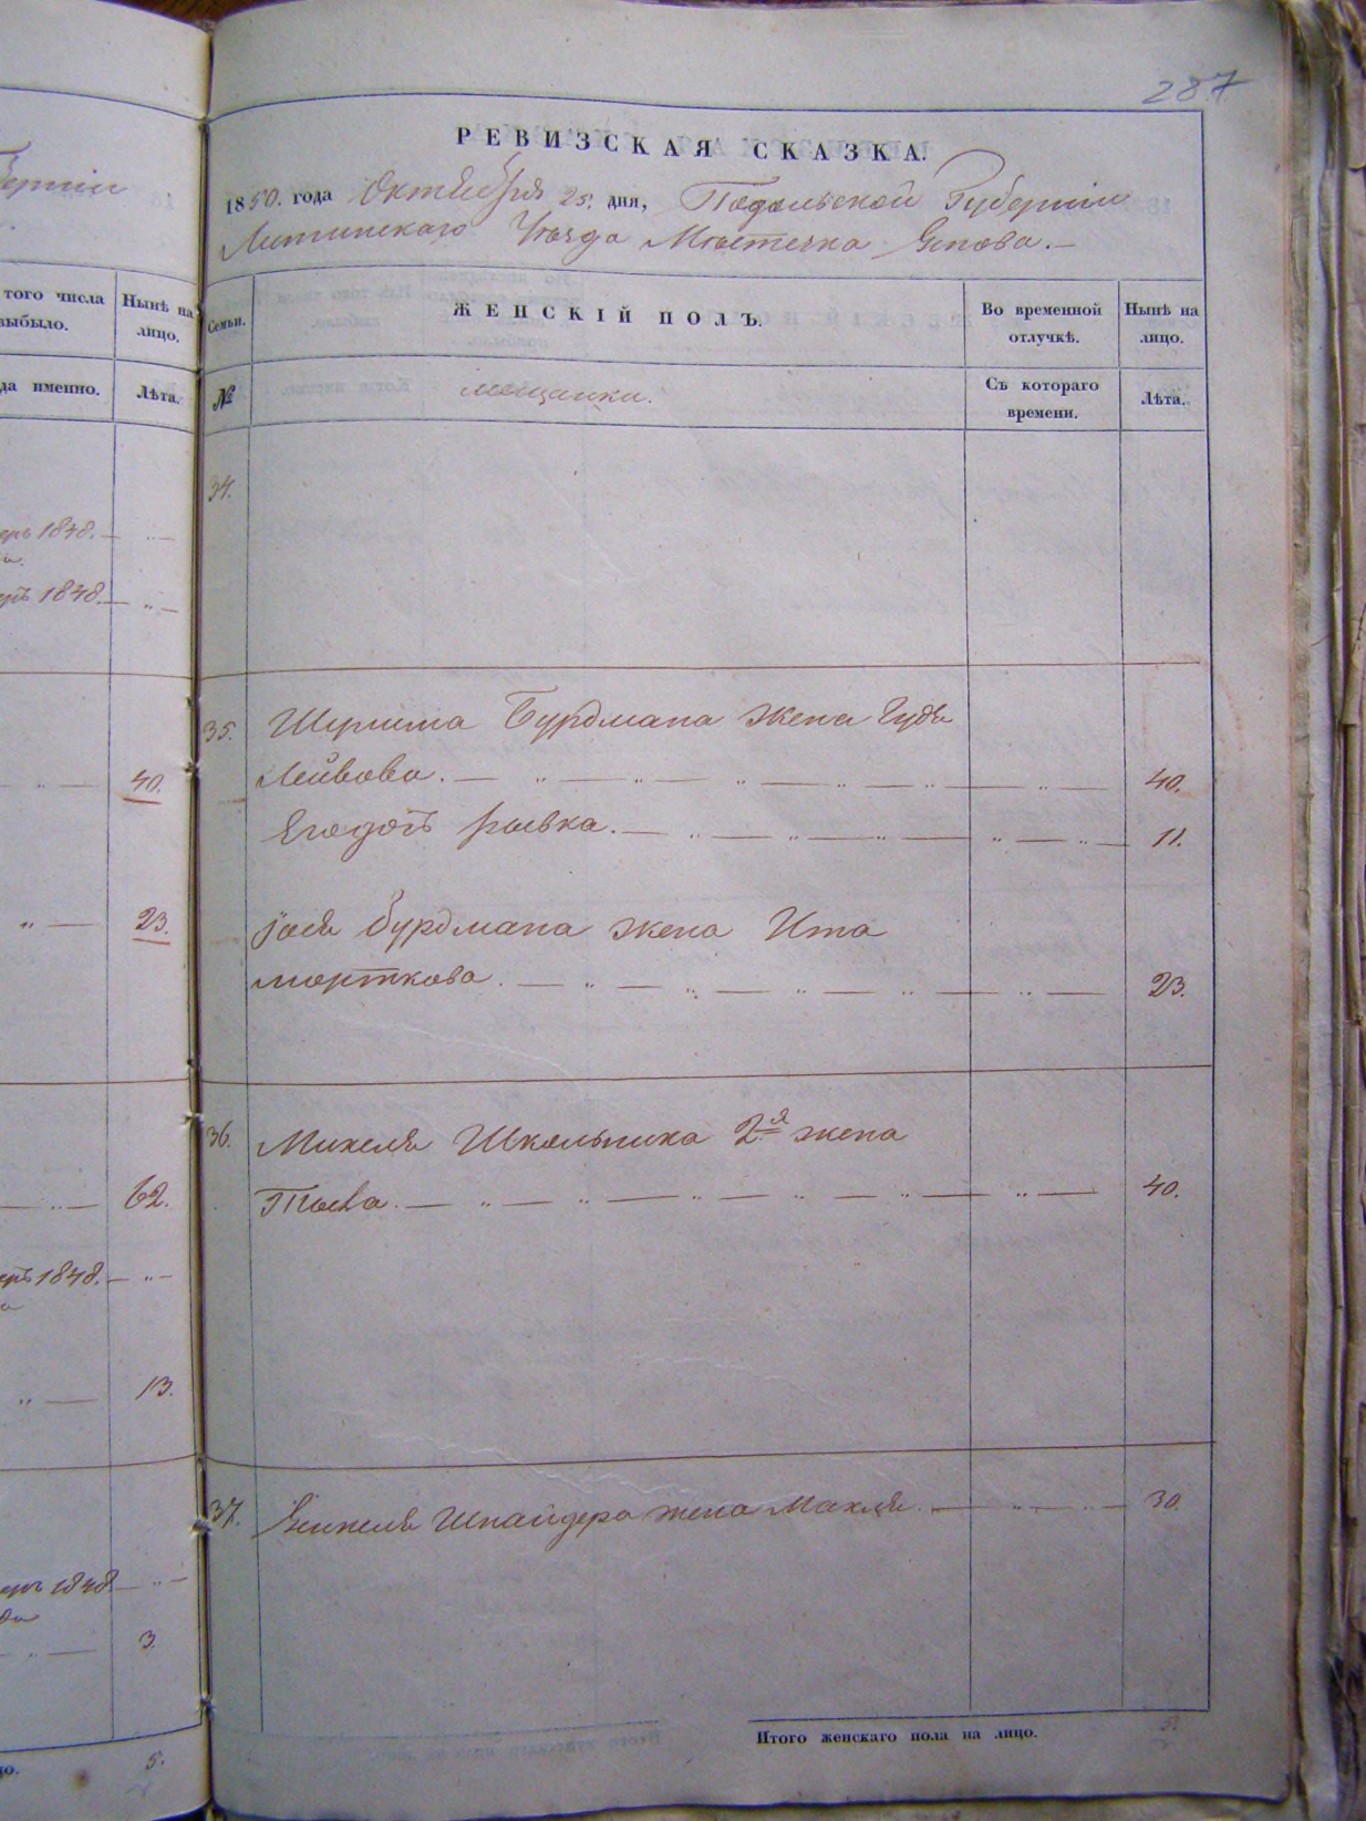 287
РЕВИЗСКАЯ СКАЗКА.
1850. года Октября 25. дня, Подольской Губерніи
Литинскаго Уѣзда Мѣстечка Янова.
бернiи
того числа
выбыло.
Нынѣ на
лицо.
да именно.
Лѣта.
Семьи.
ЖЕНСКІЙ ПОЛЪ.
Во временной
отлучкѣ.
Нынѣ на
лицо.
№
мещанки.
Съ котораго
времени.
Лѣта.
34.
1848.
1848.
35. Жена Бурдмана
Лейвова. 40.
40.
Рывка. 11.
23.
Іося Бурдмана жена Ита
морткова. 23.
36. Михеля Школьника 2я жена
62.
40.
1848.
13.
37. Шнайдера жена 30.
1848
3.
Итого женскаго пола на лицо. 5.
5.